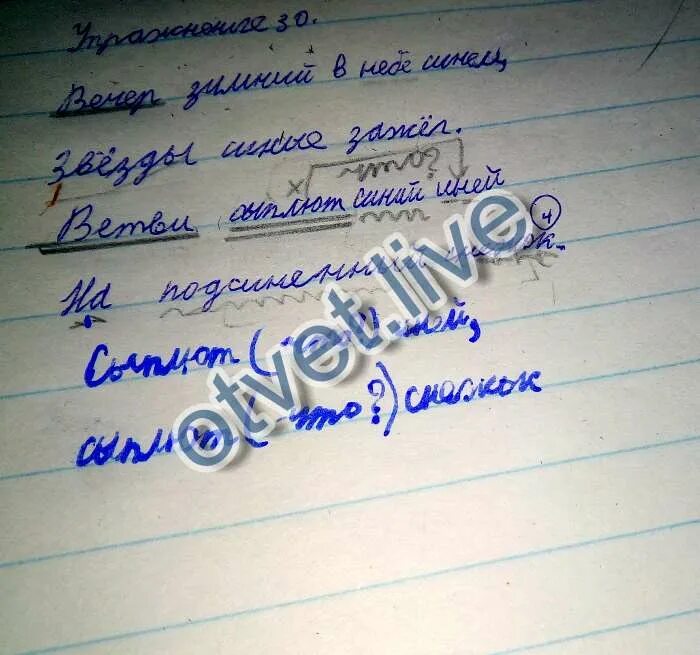 Упражнение 30.
Вечер зимний в небе синем,
Звёзды синие зажёг.
x какой
Ветви сыплют синий иней
4
На подсиненный снежок.
Сыплют (что?) иней,
сыплют (что?) снежок
otvet.live